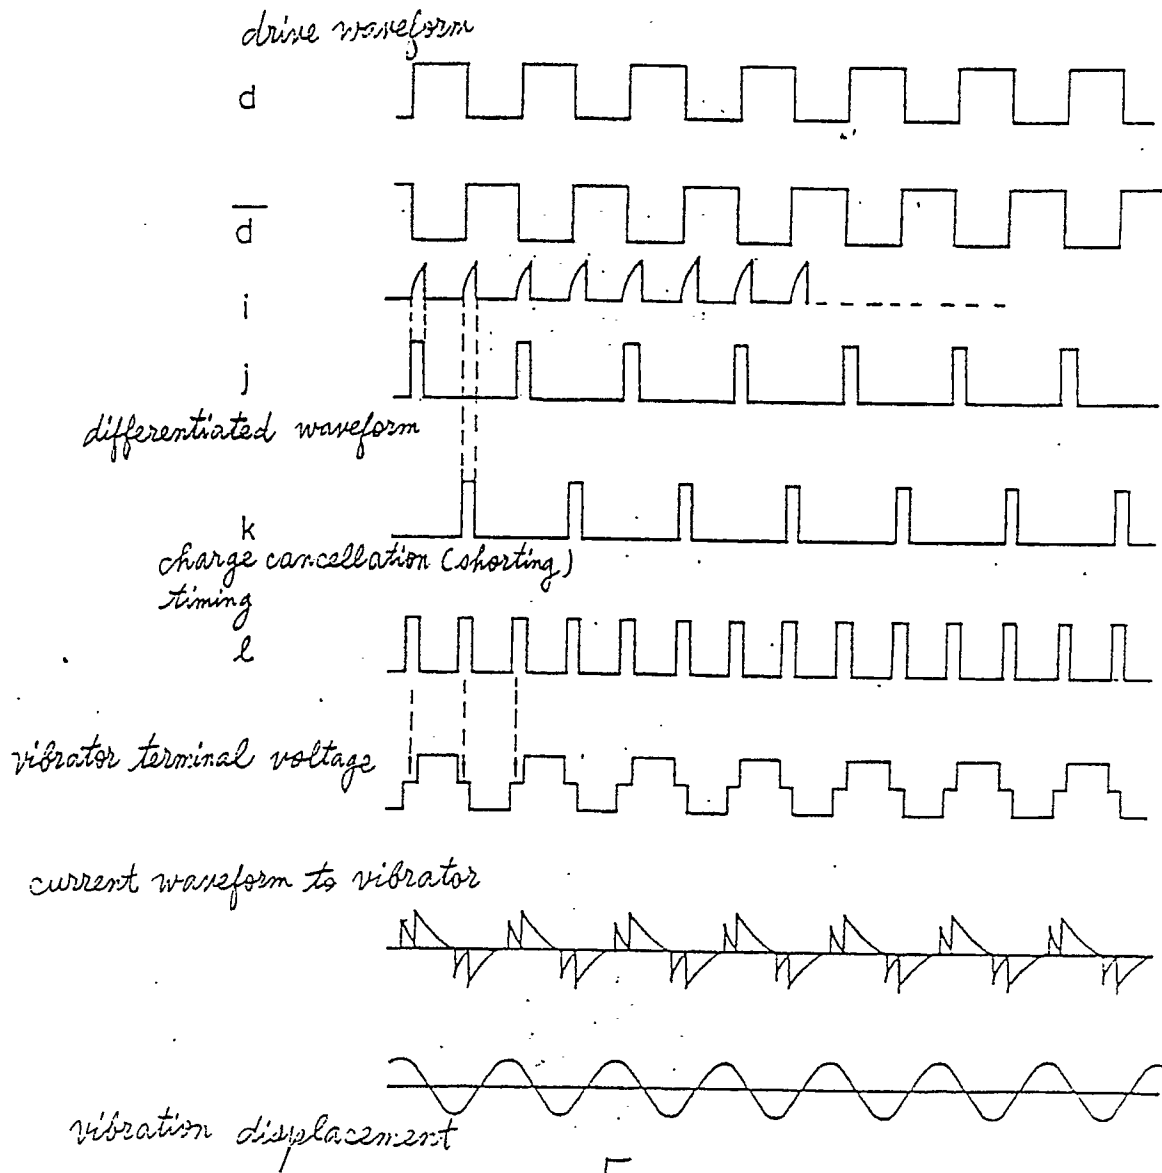 drive waveform
d
d̅
i
j
differentiated waveform
k
charge cancellation (shorting)
timing
l
vibrator terminal voltage
current waveform to vibrator
vibration displacement